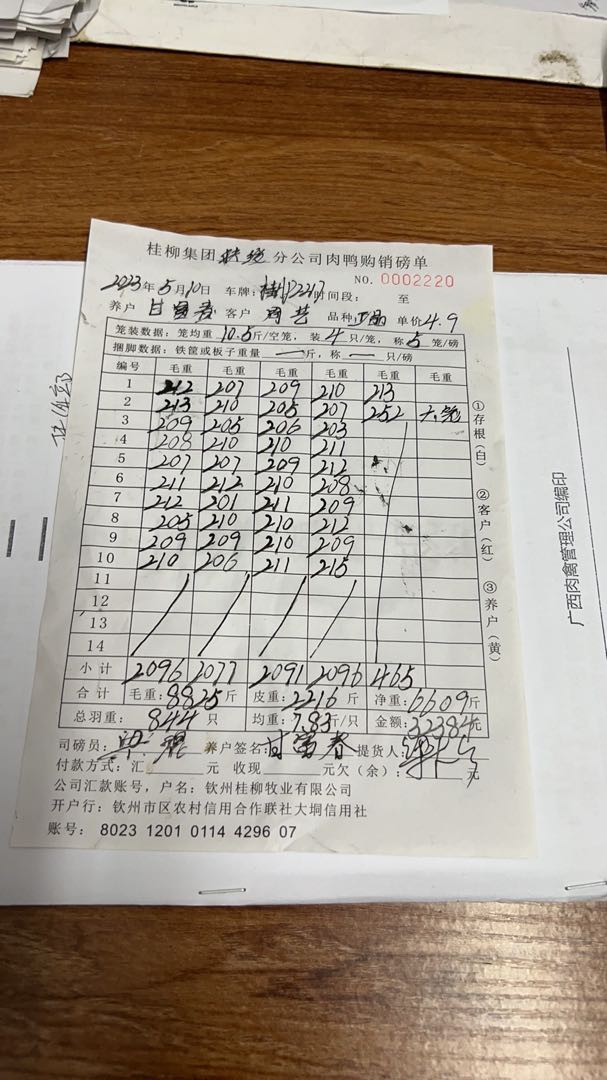 桂柳集团 分公司肉鸭购销磅单
NO. 0002220
2023年5月10日 车牌: 时间段: 至
养户 甘富春 客户 品种 单价 4.9
笼装数据: 笼均重 10.5 斤/空笼, 装 4 只/笼, 称 5 笼/磅
捆脚数据: 铁筐或板子重量 — 斤, 称 — 只/磅
编号 毛重 毛重 毛重 毛重 毛重 毛重
1 212 207 209 210 213
2 213 210 205 207 252 六笼
3 209 205 206 203
4 208 210 210 211
5 207 207 209 212
6 211 212 210 208
7 212 201 211 209
8 205 210 210 212
9 209 209 210 209
10 210 206 211 215
11
12
13
14
小计 2096 2077 2091 2096 465
合计 毛重: 8825 斤 皮重: 2216 斤 净重: 6609 斤
总羽重: 844 只 均重: 7.83 斤/只 金额: 32384 元
司磅员: 养户签名: 甘富春 提货人:
付款方式: 汇 元 收现 元欠(余): 元
公司汇款账号, 户名: 钦州桂柳牧业有限公司
开户行: 钦州市区农村信用合作联社大垌信用社
账号: 8023 1201 0114 4296 07
①存根(白) ②客户(红) ③养户(黄)
广西肉禽管理公司编印